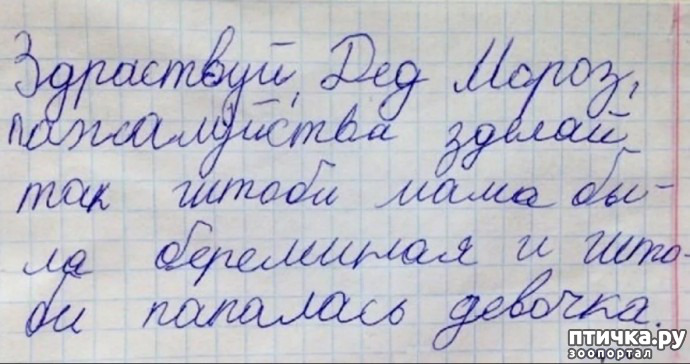 Здраствуй, Дед Мороз,
пажалуйства зделай
так штоби мама бы-
ла беременая и што-
би папалась девочка.
птичка.ру
зоопортал